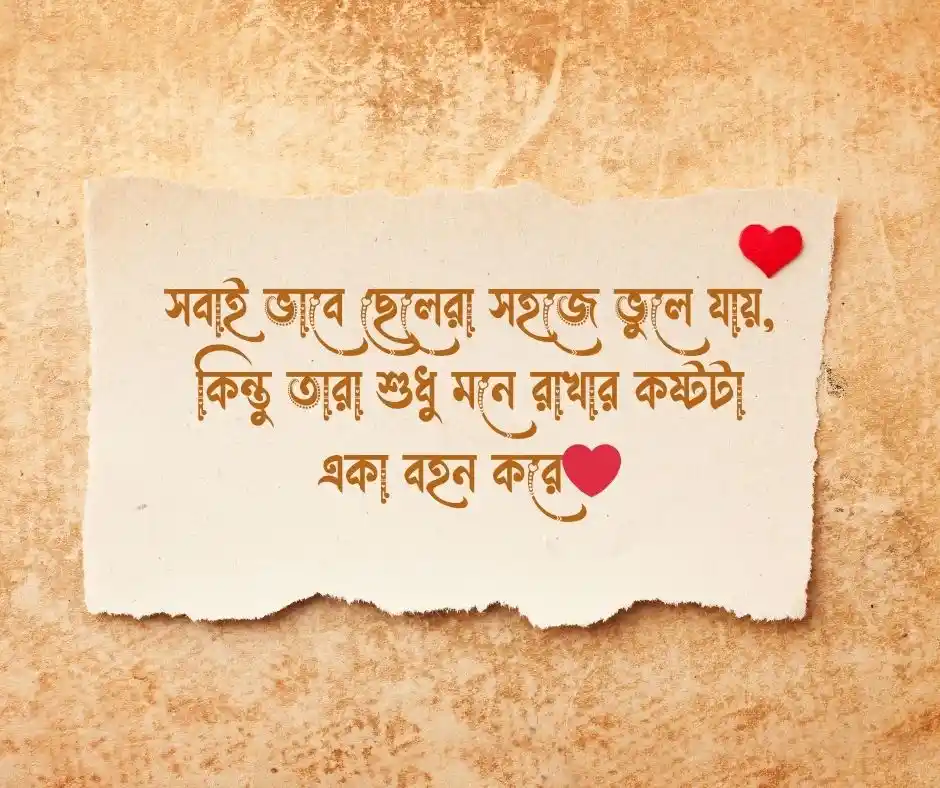 সবাই ভাবে ছেলেরা সহজে ভুলে যায়,
কিন্তু তারা শুধু মনে রাখার কষ্টটা
একা বহন করে❤️